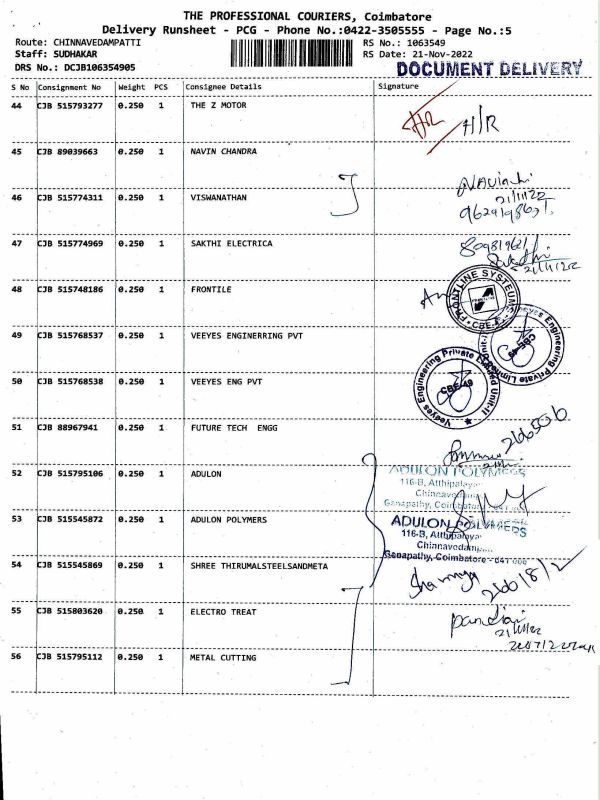 THE PROFESSIONAL COURIERS, Coimbatore
Delivery Runsheet - PCG - Phone No.:0422-3505555 - Page No.:5
Route: CHINNAVEDAMPATTI RS No.: 1063549
Staff: SUDHAKAR RS Date: 21-Nov-2022
DRS No.: DCJB106354905 DOCUMENT DELIVERY
S No Consignment No Weight PCS Consignee Details Signature
44 CJB 515793277 0.250 1 THE Z MOTOR
H/R H/R
45 CJB 89039663 0.250 1 NAVIN CHANDRA
46 CJB 515774311 0.250 1 VISWANATHAN
21/11/22
47 CJB 515774969 0.250 1 SAKTHI ELECTRICA
Sakthi
21/11/22
48 CJB 515748186 0.250 1 FRONTILE
FRONTLINE SYSTEUMS
CBE-
49 CJB 515768537 0.250 1 VEEYES ENGINERRING PVT
Veeyes Engineering Private Limited Unit-II
CBE-49
50 CJB 515768538 0.250 1 VEEYES ENG PVT
Veeyes Engineering Private Limited Unit-II
CBE-49
51 CJB 88967941 0.250 1 FUTURE TECH ENGG
52 CJB 515795106 0.250 1 ADULON
ADULON POLYMERS
116-B, Atthipalayam
Chinnavedam
Ganapathy, Coimbatore - 641 006
53 CJB 515545872 0.250 1 ADULON POLYMERS
ADULON POLYMERS
116-B, Atthipalayam
Chinnavedam
Ganapathy, Coimbatore - 641 006
54 CJB 515545869 0.250 1 SHREE THIRUMALSTEELSANDMETA
55 CJB 515803620 0.250 1 ELECTRO TREAT
pandiai
21/11/22
56 CJB 515795112 0.250 1 METAL CUTTING